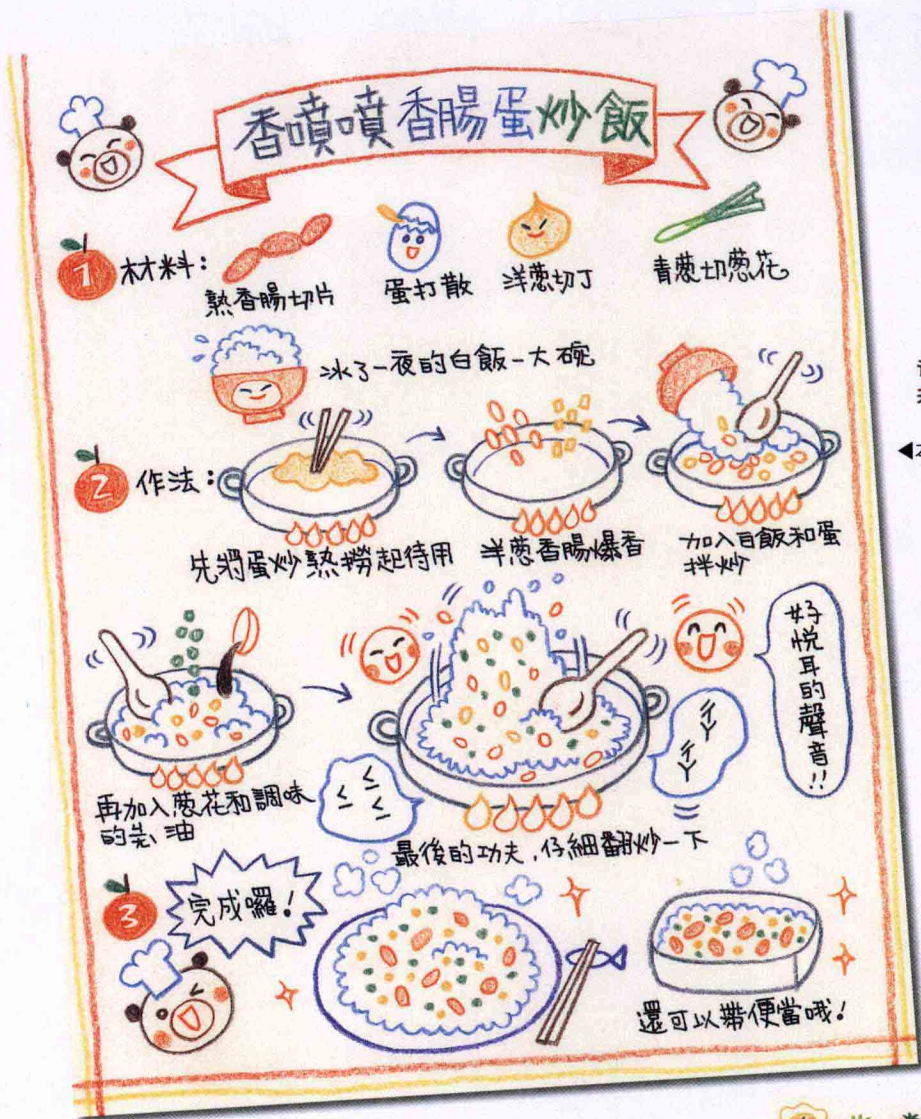 香噴噴香腸蛋炒飯
1 材料：
熟香腸切片
蛋打散
洋蔥切丁
青蔥切蔥花
冰了一夜的白飯一大碗
2 作法：
先將蛋炒熟撈起待用
洋蔥香腸爆香
加入白飯和蛋
拌炒
再加入蔥花和調味
的醬油
最後的功夫，仔細翻炒一下
好悅耳的聲音!!
3 完成囉！
還可以帶便當哦！